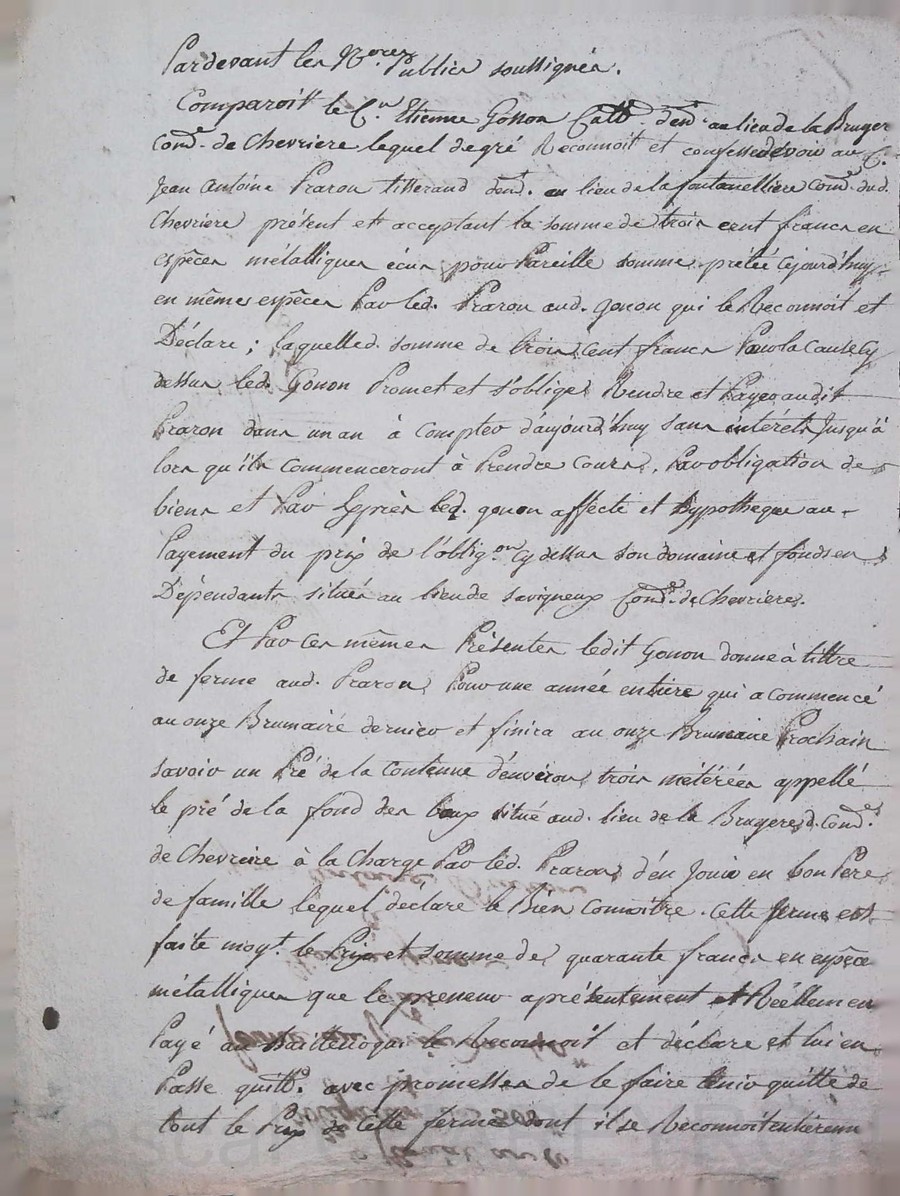 Pardevant les N.ores Publics soussignés.
Comparoitt le C.n Etienne Gonon Catt.r dem.t au lieu de la Bruyer
Com.e de Chevriere lequel de gré Reconnoit et confesse devoir au C.
Jean Antoine Praron tisserand dem.t au lieu de la fontanelliere Com.e dud.
Chevriere présent ett acceptant la somme de trois cent francs en
espêces métalliques écus pour Pareille somme prêtée cejourd'huy
en mêmes espêces Par led. Praron aud. gonon qui le Reconnoit et
Déclare ; laquelled. somme de trois cent francs Pour la Cause cy
dessus led. Gonon Promet et s'oblige Rendre et Payer audit
Praron dans un an à Compter d'aujourd'huy sans intérêts Jusqu'à
lors qu'ils Commenceront à Prendre Cours, Par obligation de
biens et Par Exprès led. gonon affecte et hypotheque au
Payement du prix de l'oblig.on cy dessus son domaine et fonds en
Dépendants situés au lieu de Savigneux Com.e de Chevrieres.
Et Par Ces mêmes Présentes ledit Gonon donne à tittre
de ferme aud. Praron, Pour une année entiere qui a commencé
au onze Brumaire dernier et finira au onze Brumaire Prochain
savoir un Pré de la Contenue d'environ trois métérées appellé
le pré de la fond des situé aud. lieu de la Bruyere d. Com.e
de Chevriere à la Charge Par led. Praron d'en Jouir en bon Pere
de famille lequel déclare le Bien Connoitre. Cette ferme est
faite moy.t le Prix et somme de quarante francs en espêce
métalliques que le preneur a présentement et Réellemen
Payé au Bailleur qui le Reconnoit et déclare et lui en
Passe quitt.e avec promesses de le faire tenir quitte de
tout le Prix de Cette ferme dont il se Reconnoit entieremn